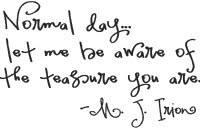 Normal day...
let me be aware of
the treasure you are.
-M. J. Irion